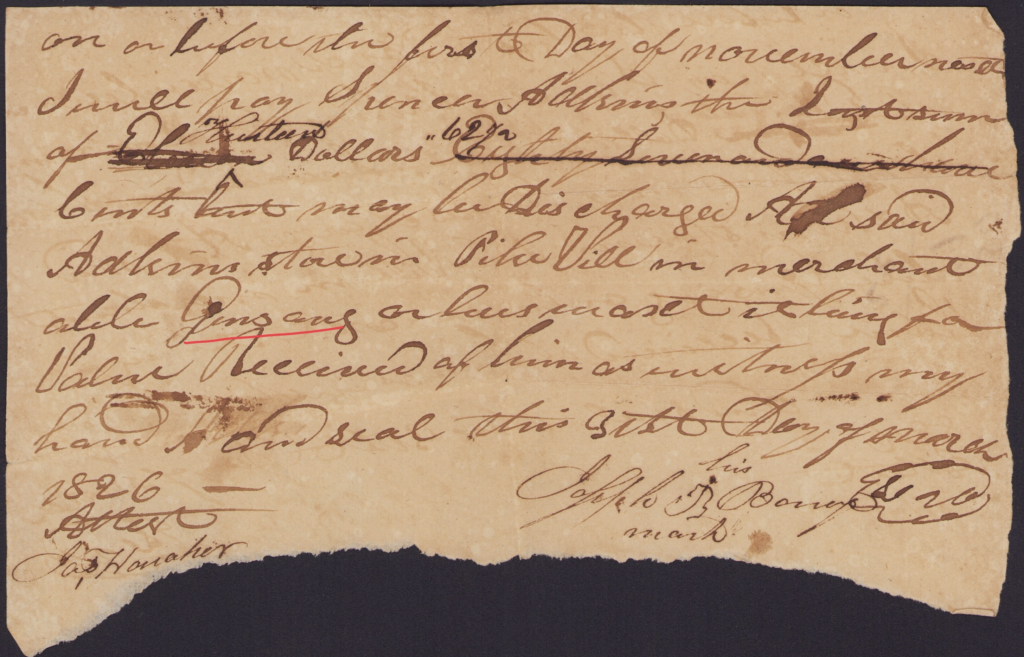 on or before the first Day of november next
I will pay Spencer Adkins the Just sum
of Dollars "62 1/2
Cents but may be Discharged At said
Adkins store in Pike Vill in merchant
able Genzang or bees wax it being for
Value Received of him as witness my
hand and seal this 31st Day of march
1826
his
Joseph Bony Seal
mark
Attest
Jas Honaker